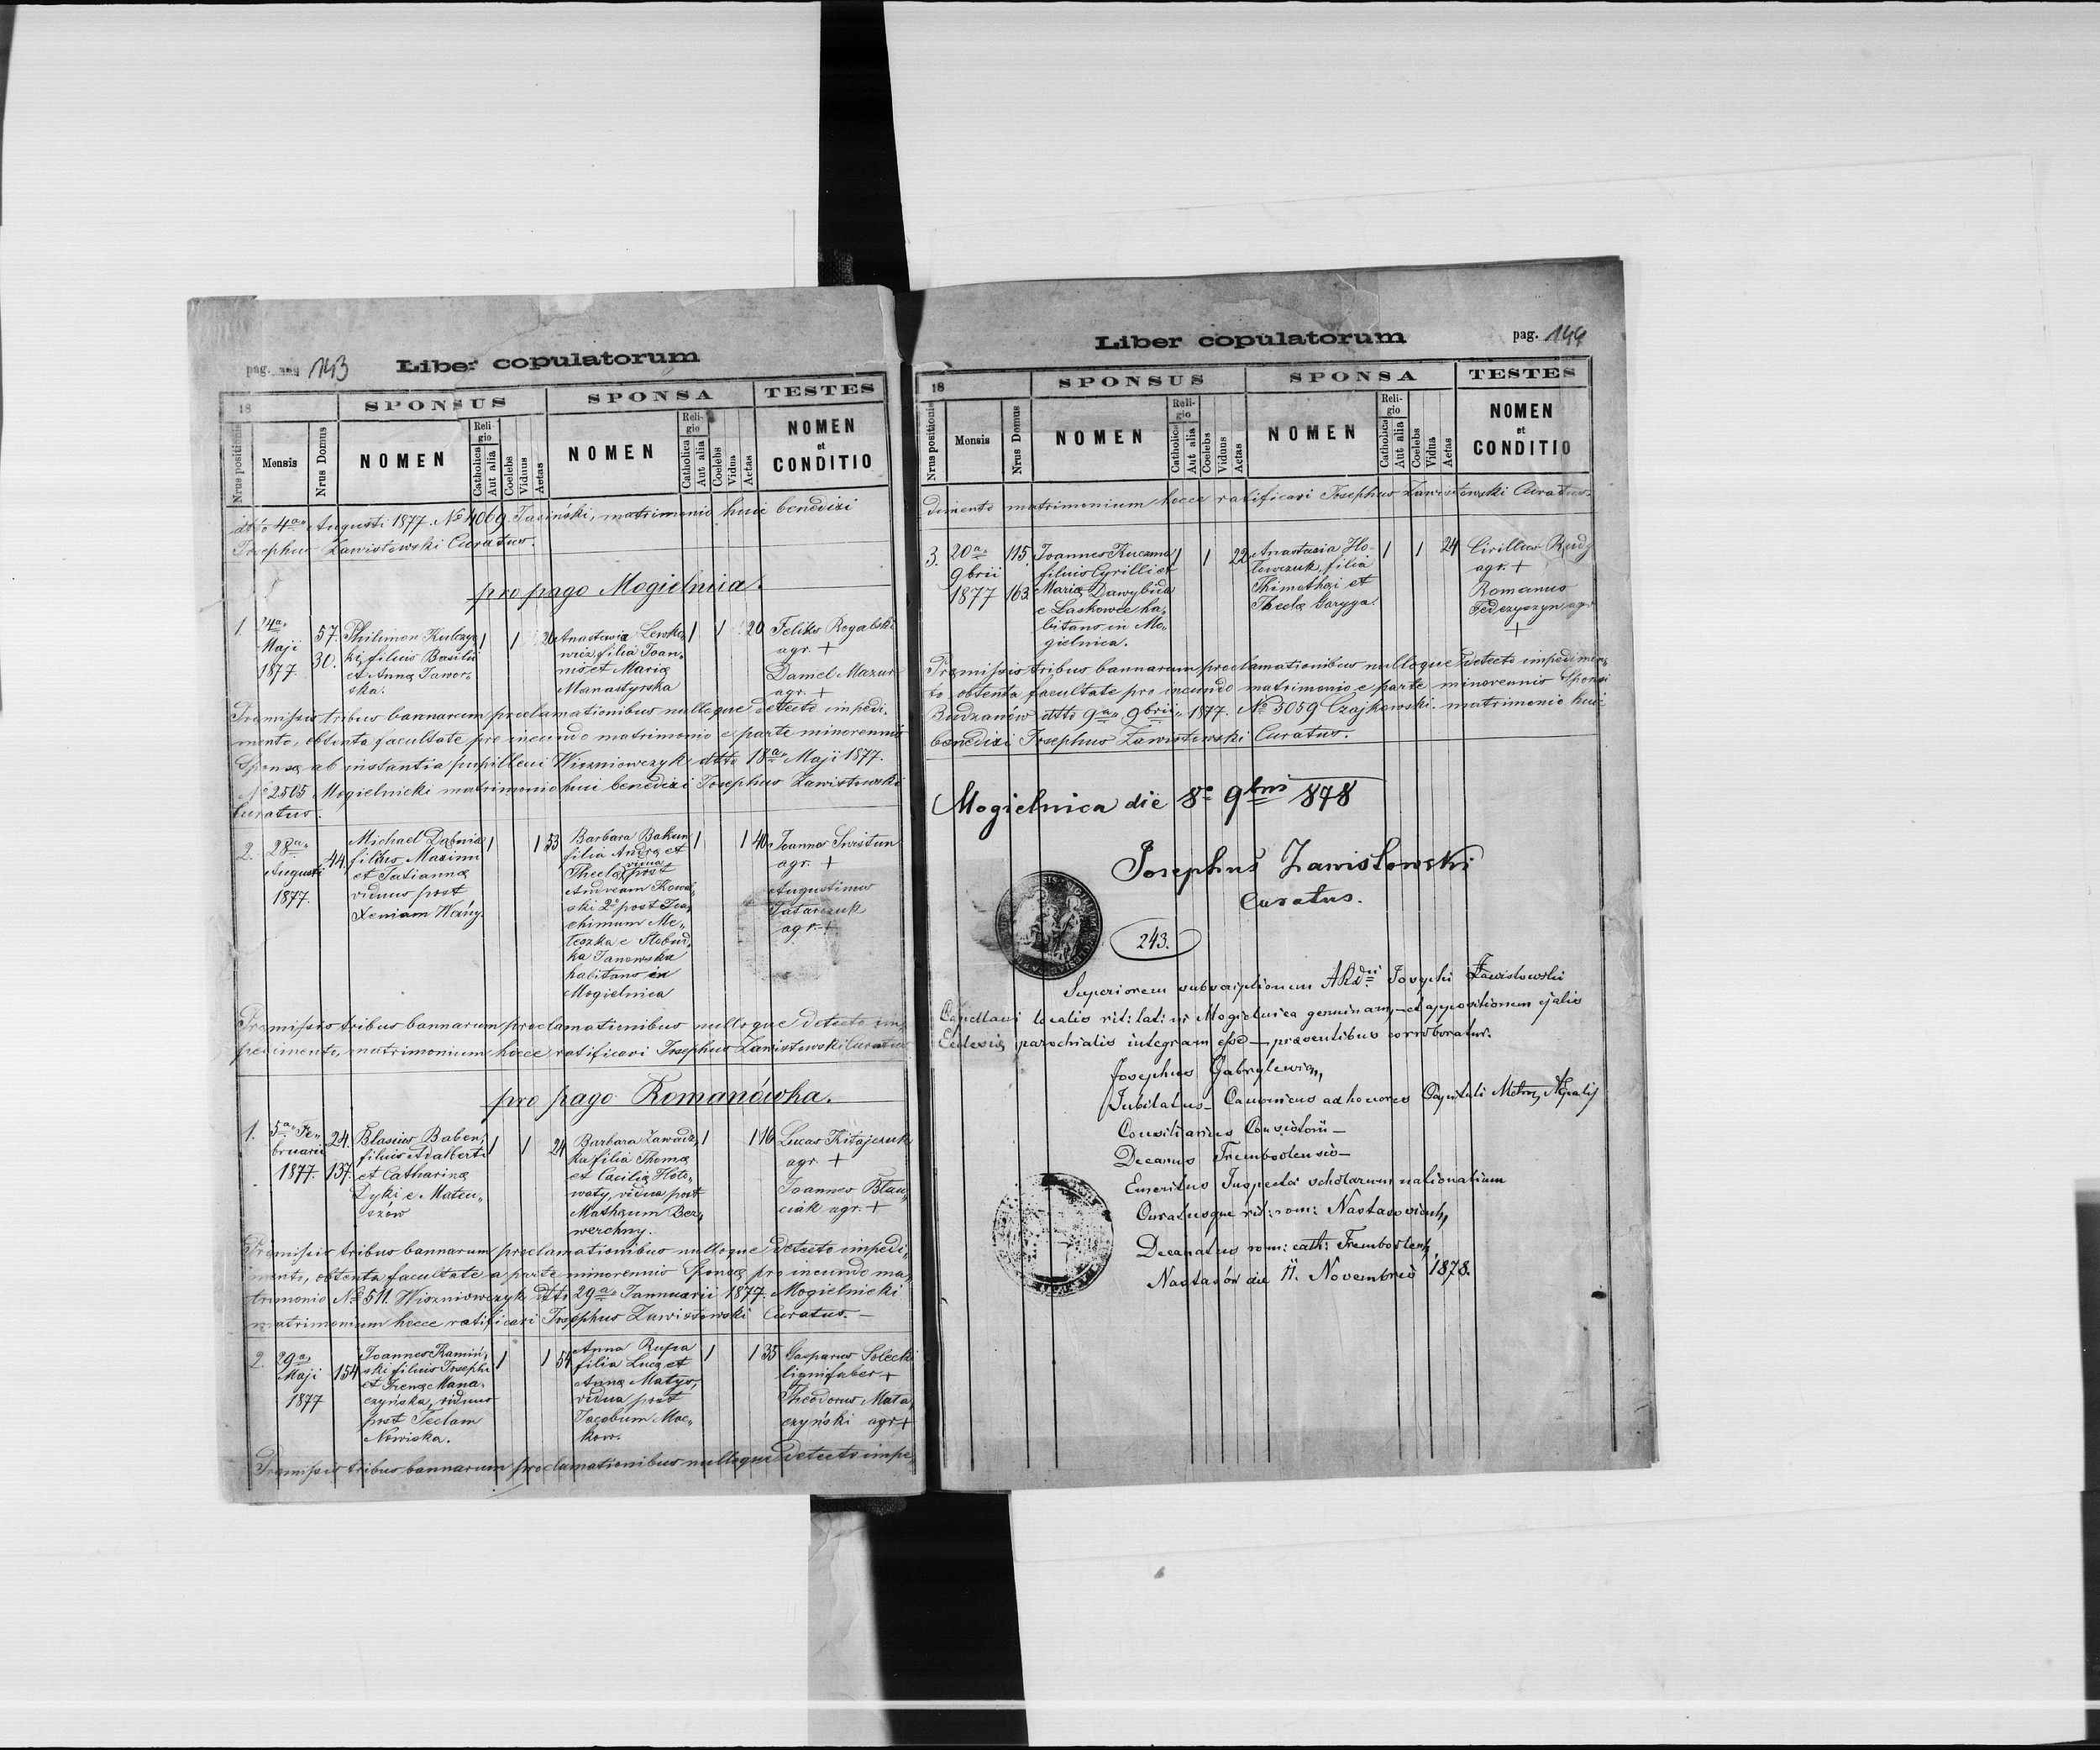 pag. 143
Liber copulatorum
18
SPONSUS
SPONSA
TESTES
Nrus positionis
Mensis
Nrus Domus
NOMEN
Religio
Catholica
Aut alia
Coelebs
Viduus
Aetas
NOMEN
Religio
Catholica
Aut alia
Coelebs
Vidua
Aetas
NOMEN
et
CONDITIO
dtto 4a Augusti 1877. No 4069 Jasiński, matrimonio huic benedixi
Josephus Zawistowski Curatus.
pro pago Mogielnica.
1.
24a
Maji
1877.
57.
30.
Philimon Kulczyc„
ki, filius Basilii
et Annæ Jawor„
ska.
1 1 20
Anastasia Lewko„
wicz, filia Joan„
nis et Mariæ
Manastyrska
1 1 20
Feliks Rogalski
agr. +
Daniel Mazur
agr. +
Præmissis tribus bannarum proclamationibus nulloque detecto impedi„
mento, obtenta facultate pro ineundo matrimonio e parte minorennis
Sponsæ ab instantia pupillari Wiszniowczyk dtto 18a Maji 1877.
No 2505 Mogielnicki matrimonio huic benedixi Josephus Zawistowski
Curatus.
2.
28a
Augusti
1877.
44.
Michael Dabnia
filius Maximi
et Tatiannæ
viduus post
Xeniam Wozny.
1 1 53
Barbara Bakun
filia Andreæ et
Theclæ vidua post
Andream Kowal
ski 2o post Joa„
chimum Me„
leszka e Slobud„
ka Janowska
habitans in
Mogielnica
1 1 40
Joannes Swistun
agr. +
Augustinus
Tatarczuk
agr. +
Præmissis tribus bannarum proclamationibus nulloque detecto im„
pedimento, matrimonium hocce ratificavi Josephus Zawistowski Curatus
pro pago Romanówka.
1.
5a Fe„
bruarii
1877.
24.
137.
Blasius Baben,
filius Adalberti
et Catharinæ
Dyki e Mateu„
szów
1 1 24
Barbara Zawadz„
ka filia Thomæ
et Cæciliæ Hoło„
waty, vidua post
Mathæum Bez„
werchny.
1 1 16
Lucas Kitajczuk
agr +
Joannes Blau„
ciak agr. +
Præmissis tribus bannarum proclamationibus nulloque detecto impedi„
mento, obtenta facultate a parte minorennis Sponsæ pro ineundo ma„
trimonio No 511. Wiszniowczyk dtto 29a Jannuarii 1877. Mogielnicki
matrimonium hocce ratificavi Josephus Zawistowski Curatus.—
2.
29a
Maji
1877
154
Joannes Kamiń„
ski filius Josephi
et Irenæ Mana„
czyńska, viduus
post Teclam
Nowicka.
1 1 54
Anna Rupa
filia Lucæ et
Annæ Matys,
vidua post
Jacobum Moc„
kow.
1 1 35
Gasparus Solecki
lignifaber +
Theodorus Mata„
czyński agr +
Præmissis tribus bannarum proclamationibus nulloque detecto impe„
Liber copulatorum
pag. 144
18
SPONSUS
SPONSA
TESTES
Nrus positionis
Mensis
Nrus Domus
NOMEN
Religio
Catholica
Aut alia
Coelebs
Viduus
Aetas
NOMEN
Religio
Catholica
Aut alia
Coelebs
Vidua
Aetas
NOMEN
et
CONDITIO
dimento matrimonium hocce ratificavi Josephus Zawistowski Curatus.
3.
20a
9brii
1877
115.
163.
Joannes Kuczma
filius Cyrilli et
Mariæ Dawybida
e Laskowce ha„
bitans in Mo„
gielnica.
1 1 22
Anastasia Ho„
lowczuk, filia
Thimothæi et
Theclæ Garyga.
1 1 24
Cirillus Rudy
agr. +
Romanus
Fedczyszyn agr
+
Præmissis tribus bannarum proclamationibus nulloque detecto impedimen„
to, obtenta facultate pro ineundo matrimonio e parte minorennis Sponsi
Budzanów dtto 9a 9brii 1877. No 3059 Czajkowski. matrimonio huic
benedixi Josephus Zawistowski Curatus.
Mogielnica die 8a 9bris 878
Josephus Zawistowski
Curatus.
243.
Superiorem subscriptionem ARdni Josephi Zawistowski
Capellani localis rit: lat: in Mogielnica genuinam,—et appositionem ejalis
Ecclesiæ parochialis integram esse—præsentibus corroboratur.
Josephus Gabrylewicz,
Jubilatus— Canonicus ad honores Capituli Metro,
Consiliarius Consistorii—
Decanus Trembovlensis—
Emeritus Inspector scholarum nationalium
Curatusque rit: rom: Nastasoviensis,
Decanatus rom: cath: Trembovlens,
Nastasów die 11. Novembris 1878.